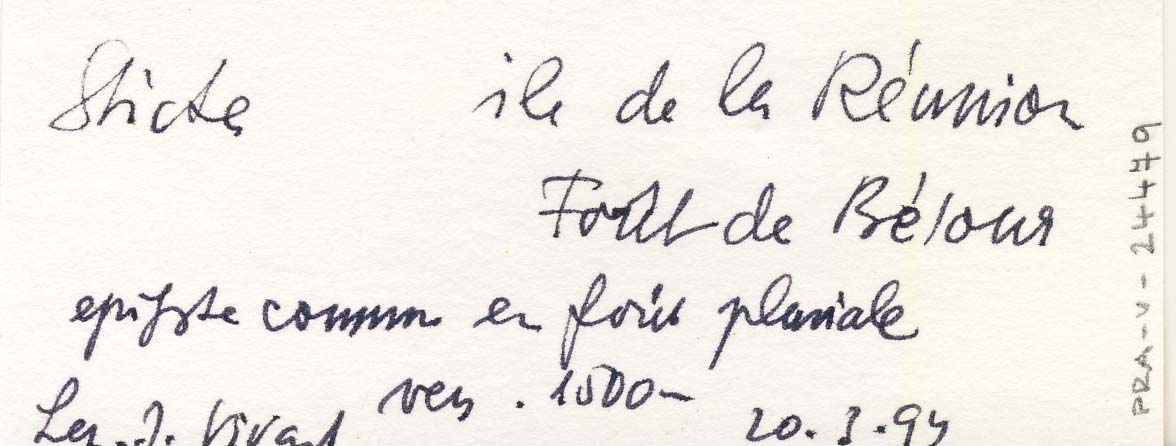 Sticta île de la Réunion
Forêt de Bélour
epifyte commun en forêt pluviale
vers . 1500m
Leg. J. Vivant 20.3.94
PRA-V-24479